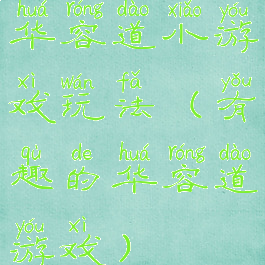 huá róng dào xiǎo yóu
华容道小游
xì wán fǎ yǒu
戏玩法（有
qù de huá róng dào
趣的华容道
yóu xì
游戏）